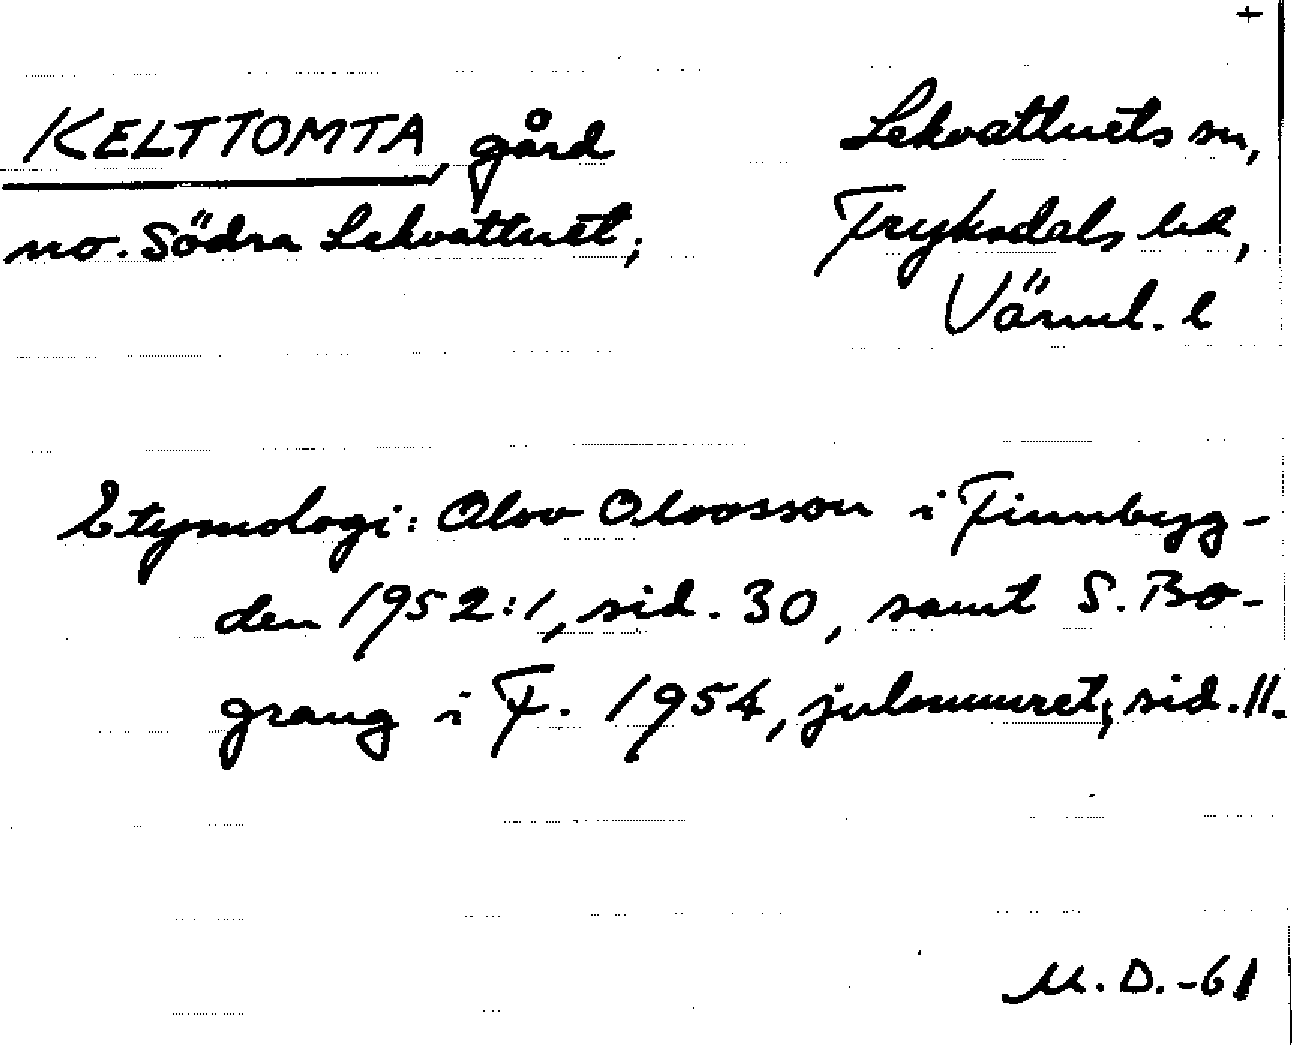 +
KELTTOMTA, gård
no. Södra Lekvattnet;
Lekvattnets sn,
Fryksdals hd,
Värml. l
Etymologi: Olov Olovsson i Finnbyg-
den 1952:1, sid. 30, samt S. Bo-
grang i F. 1954, julnumret, sid. 11.
M. D. -61